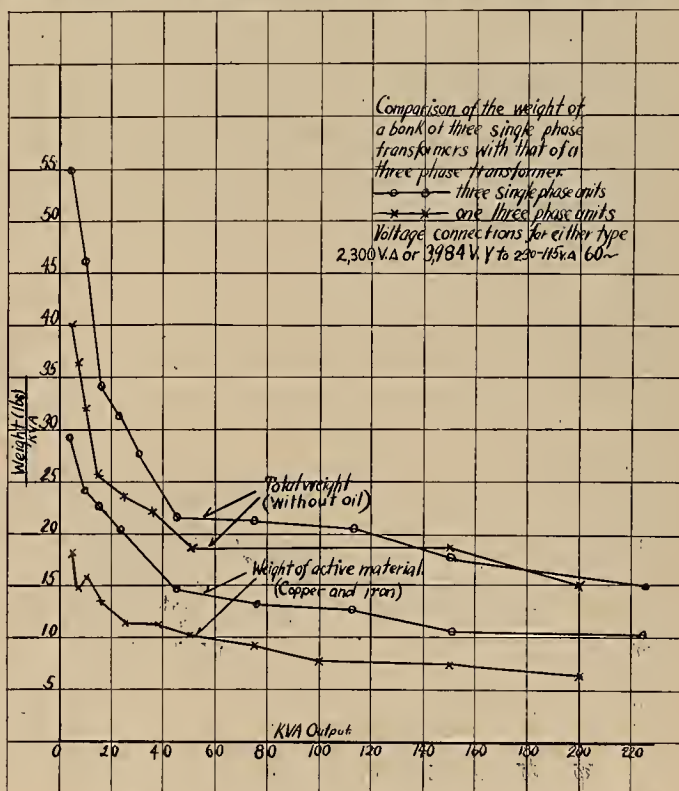 Comparison of the weight of
a bank of three single phase
transformers with that of a
three phase transformer
three single phase units
one three phase units
Voltage connections for either type
2,300 V.Δ or 3,984 V. Y to 230-115 V.Δ 60~
55
50
45
40
35
30
25
20
15
10
5
Weight (lbs)
KVA
Total weight
(Without oil)
Weight of active material.
(Copper and iron)
KVA Output.
0 20 40 60 80 100 120 140 160 180 200 220